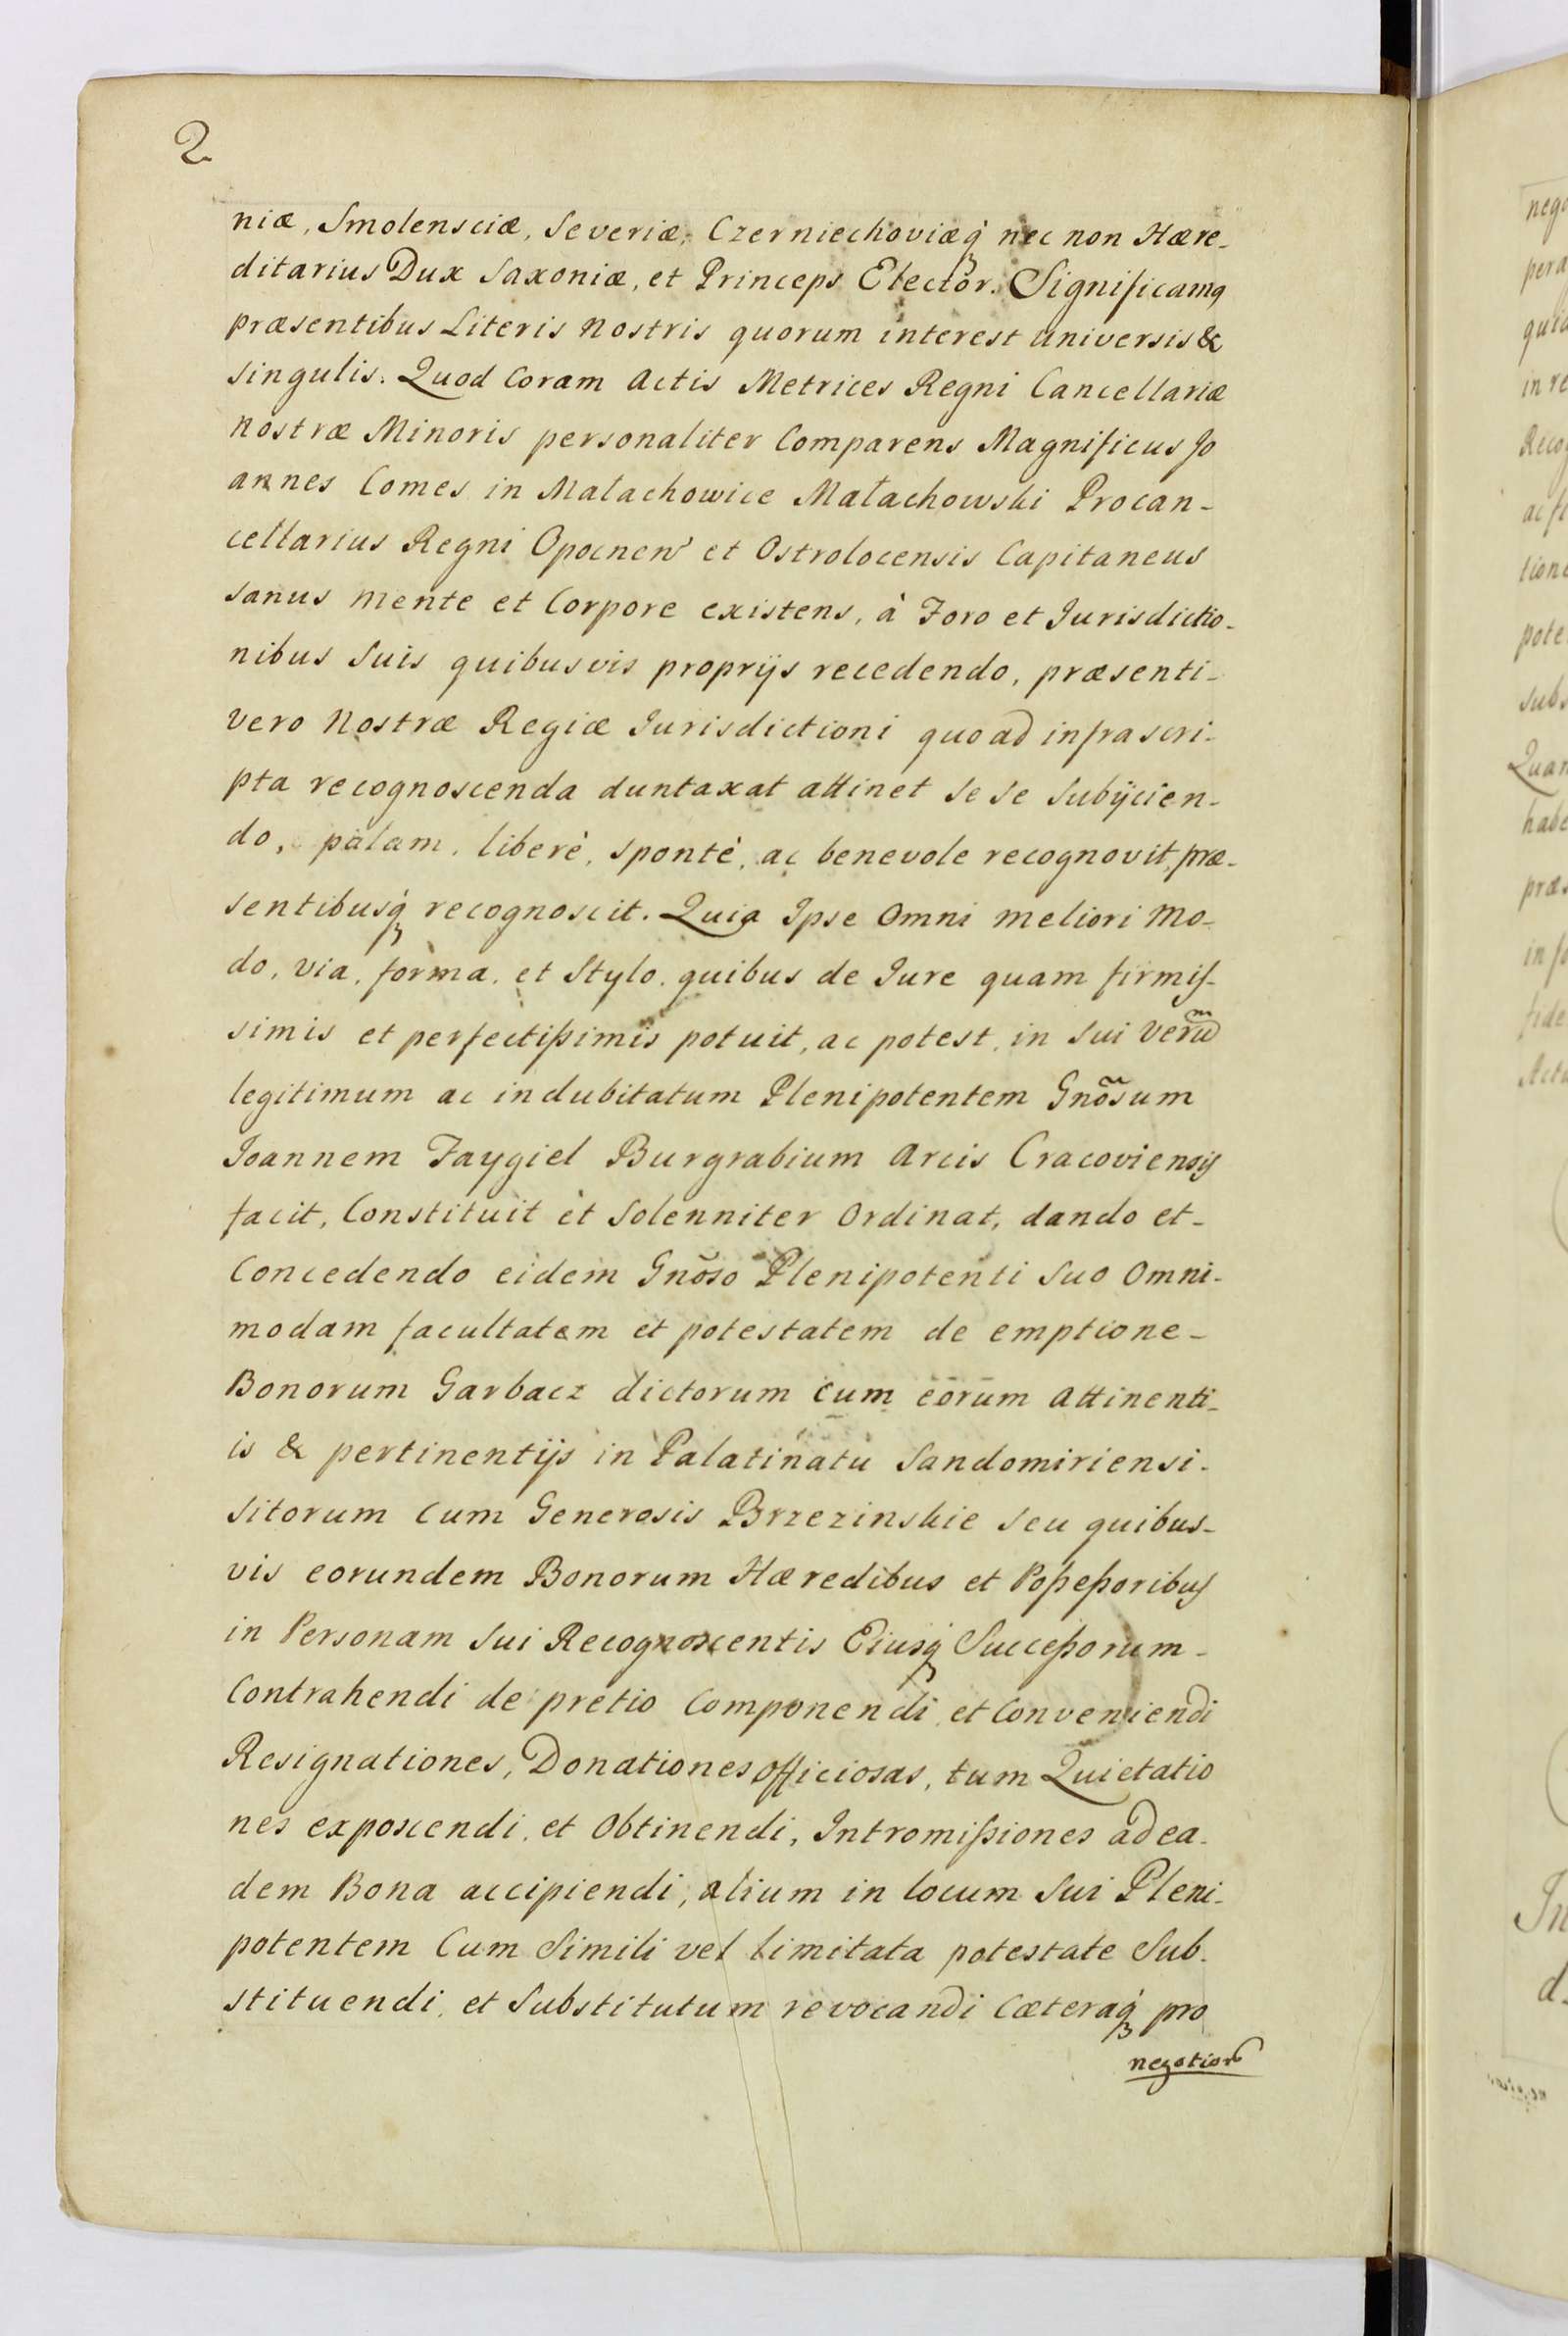 2
niæ, Smolensciæ, Severiæ, Czerniechoviæq́ nec non Hære-
ditarius Dux Saxoniæ, et Princeps Elector. Significamq
præsentibus Literis nostris quorum interest universis &
singulis. Quod Coram Actis Metrices Regni Cancellariæ
nostræ Minoris personaliter Comparens Magnificus Jo
annes Comes in Małachowice Małachowski Procan-
cellarius Regni Opocnen' et Ostrolocensis Capitaneus
sanus mente et Corpore existens, à Foro et Jurisdictio-
nibus Suis quibusvis proprijs recedendo, præsenti-
vero nostræ Regiæ Jurisdictioni quoad infrascri-
pta recognoscenda duntaxat attinet se se Subÿcien-
do, palam, liberè, spontè, ac benevole recognovit, præ-
sentibusq́ recognoscit. Quia Ipse Omni meliori mo-
do, via, forma, et Stylo, quibus de Jure quam firmis-
simis et perfectißimis potuit, ac potest, in Sui verũ
legitimum ac indubitatum Plenipotentem Gnõsum
Joannem Faygiel Burgrabium Arcis Cracoviensis
facit, Constituit et Solenniter Ordinat, dando et-
Concedendo eidem Gnõso Plenipotenti Suo Omni-
modam facultatem et potestatem de emptione-
Bonorum Garbacz dictorum cum eorum Attinenti-
is & pertinentijs in Palatinatu Sandomiriensi-
Sitorum Cum Generosis Brzezinskie Seu quibus-
vis eorundem Bonorum Hæredibus et Poßeßoribus
in Personam Sui Recognoscentis Eiusq́ Succeßorum-
Contrahendi de pretio Componendi et Conveniendi
Resignationes, Donationes officiosas, tum Quietatio
nes exposcendi, et Obtinendi, Intromißiones ad ea-
dem Bona accipiendi, alium in locum Sui Pleni-
potentem Cum Simili vel limitata potestate Sub-
stituendi, et Substitutum revocandi Cæteraq́ pro
negotior